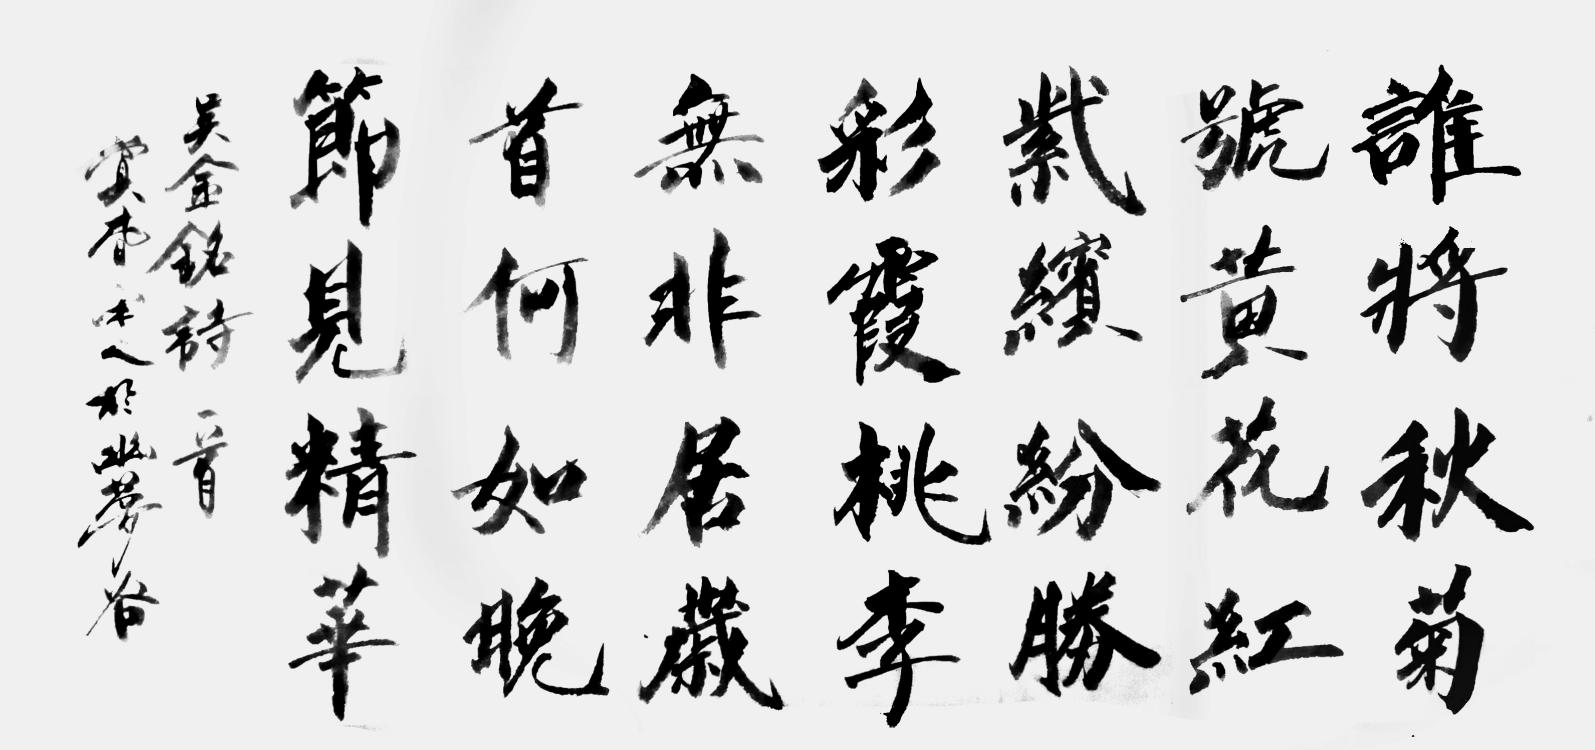 誰將秋菊
號黃花紅
紫繽紛勝
彩霞桃李
無非居歲
首何如晚
節見精華
吳金銘詩 一首
賞春 人於幽夢谷